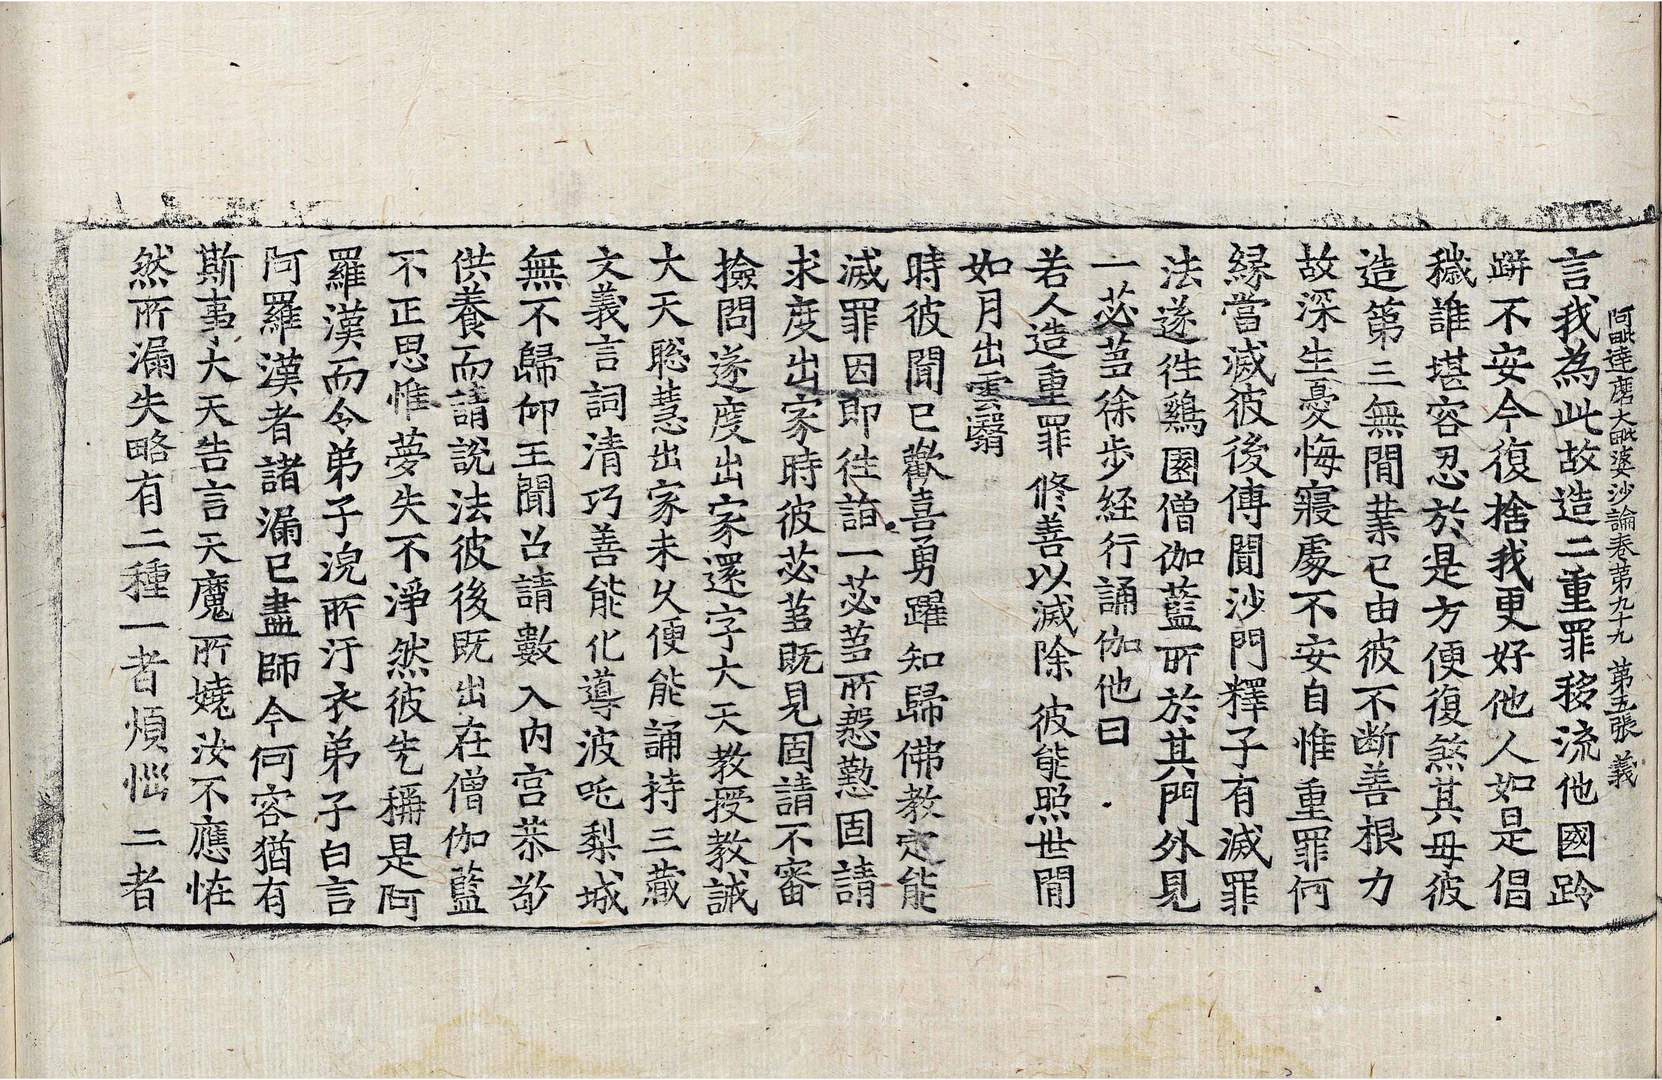 阿毗達磨大毗婆沙論卷第九十九 第五張 義
言我為此故造二重罪移流他國跉
跰不安今復捨我更好他人如是倡
穢誰堪容忍於是方便復煞其母彼
造第三無間業已由彼不断善根力
故深生憂悔寢處不安自惟重罪何
緣當滅彼後傳聞沙門釋子有滅罪
法遂往鷄園僧伽藍所於其門外見
一苾芻徐步経行誦伽他曰
若人造重罪 修善以滅除 彼能照世間
如月出雲翳
時彼聞已歡喜勇躍知歸佛教定能
滅罪因即往詣一苾芻所慇懃固請
求度出家時彼苾芻既見固請不審
撿問遂度出家還字大天教授教誡
大天聡慧出家未久便能誦持三藏
文義言詞清巧善能化導波吒梨城
無不歸仰王聞召請數入内宫恭敬
供養而請說法彼後既出在僧伽藍
不正思惟夢失不淨然彼先稱是阿
羅漢而令弟子浣所汙衣弟子白言
阿羅漢者諸漏已盡師今何容猶有
斯事大天告言天魔所嬈汝不應恠
然所漏失略有二種一者煩惱二者